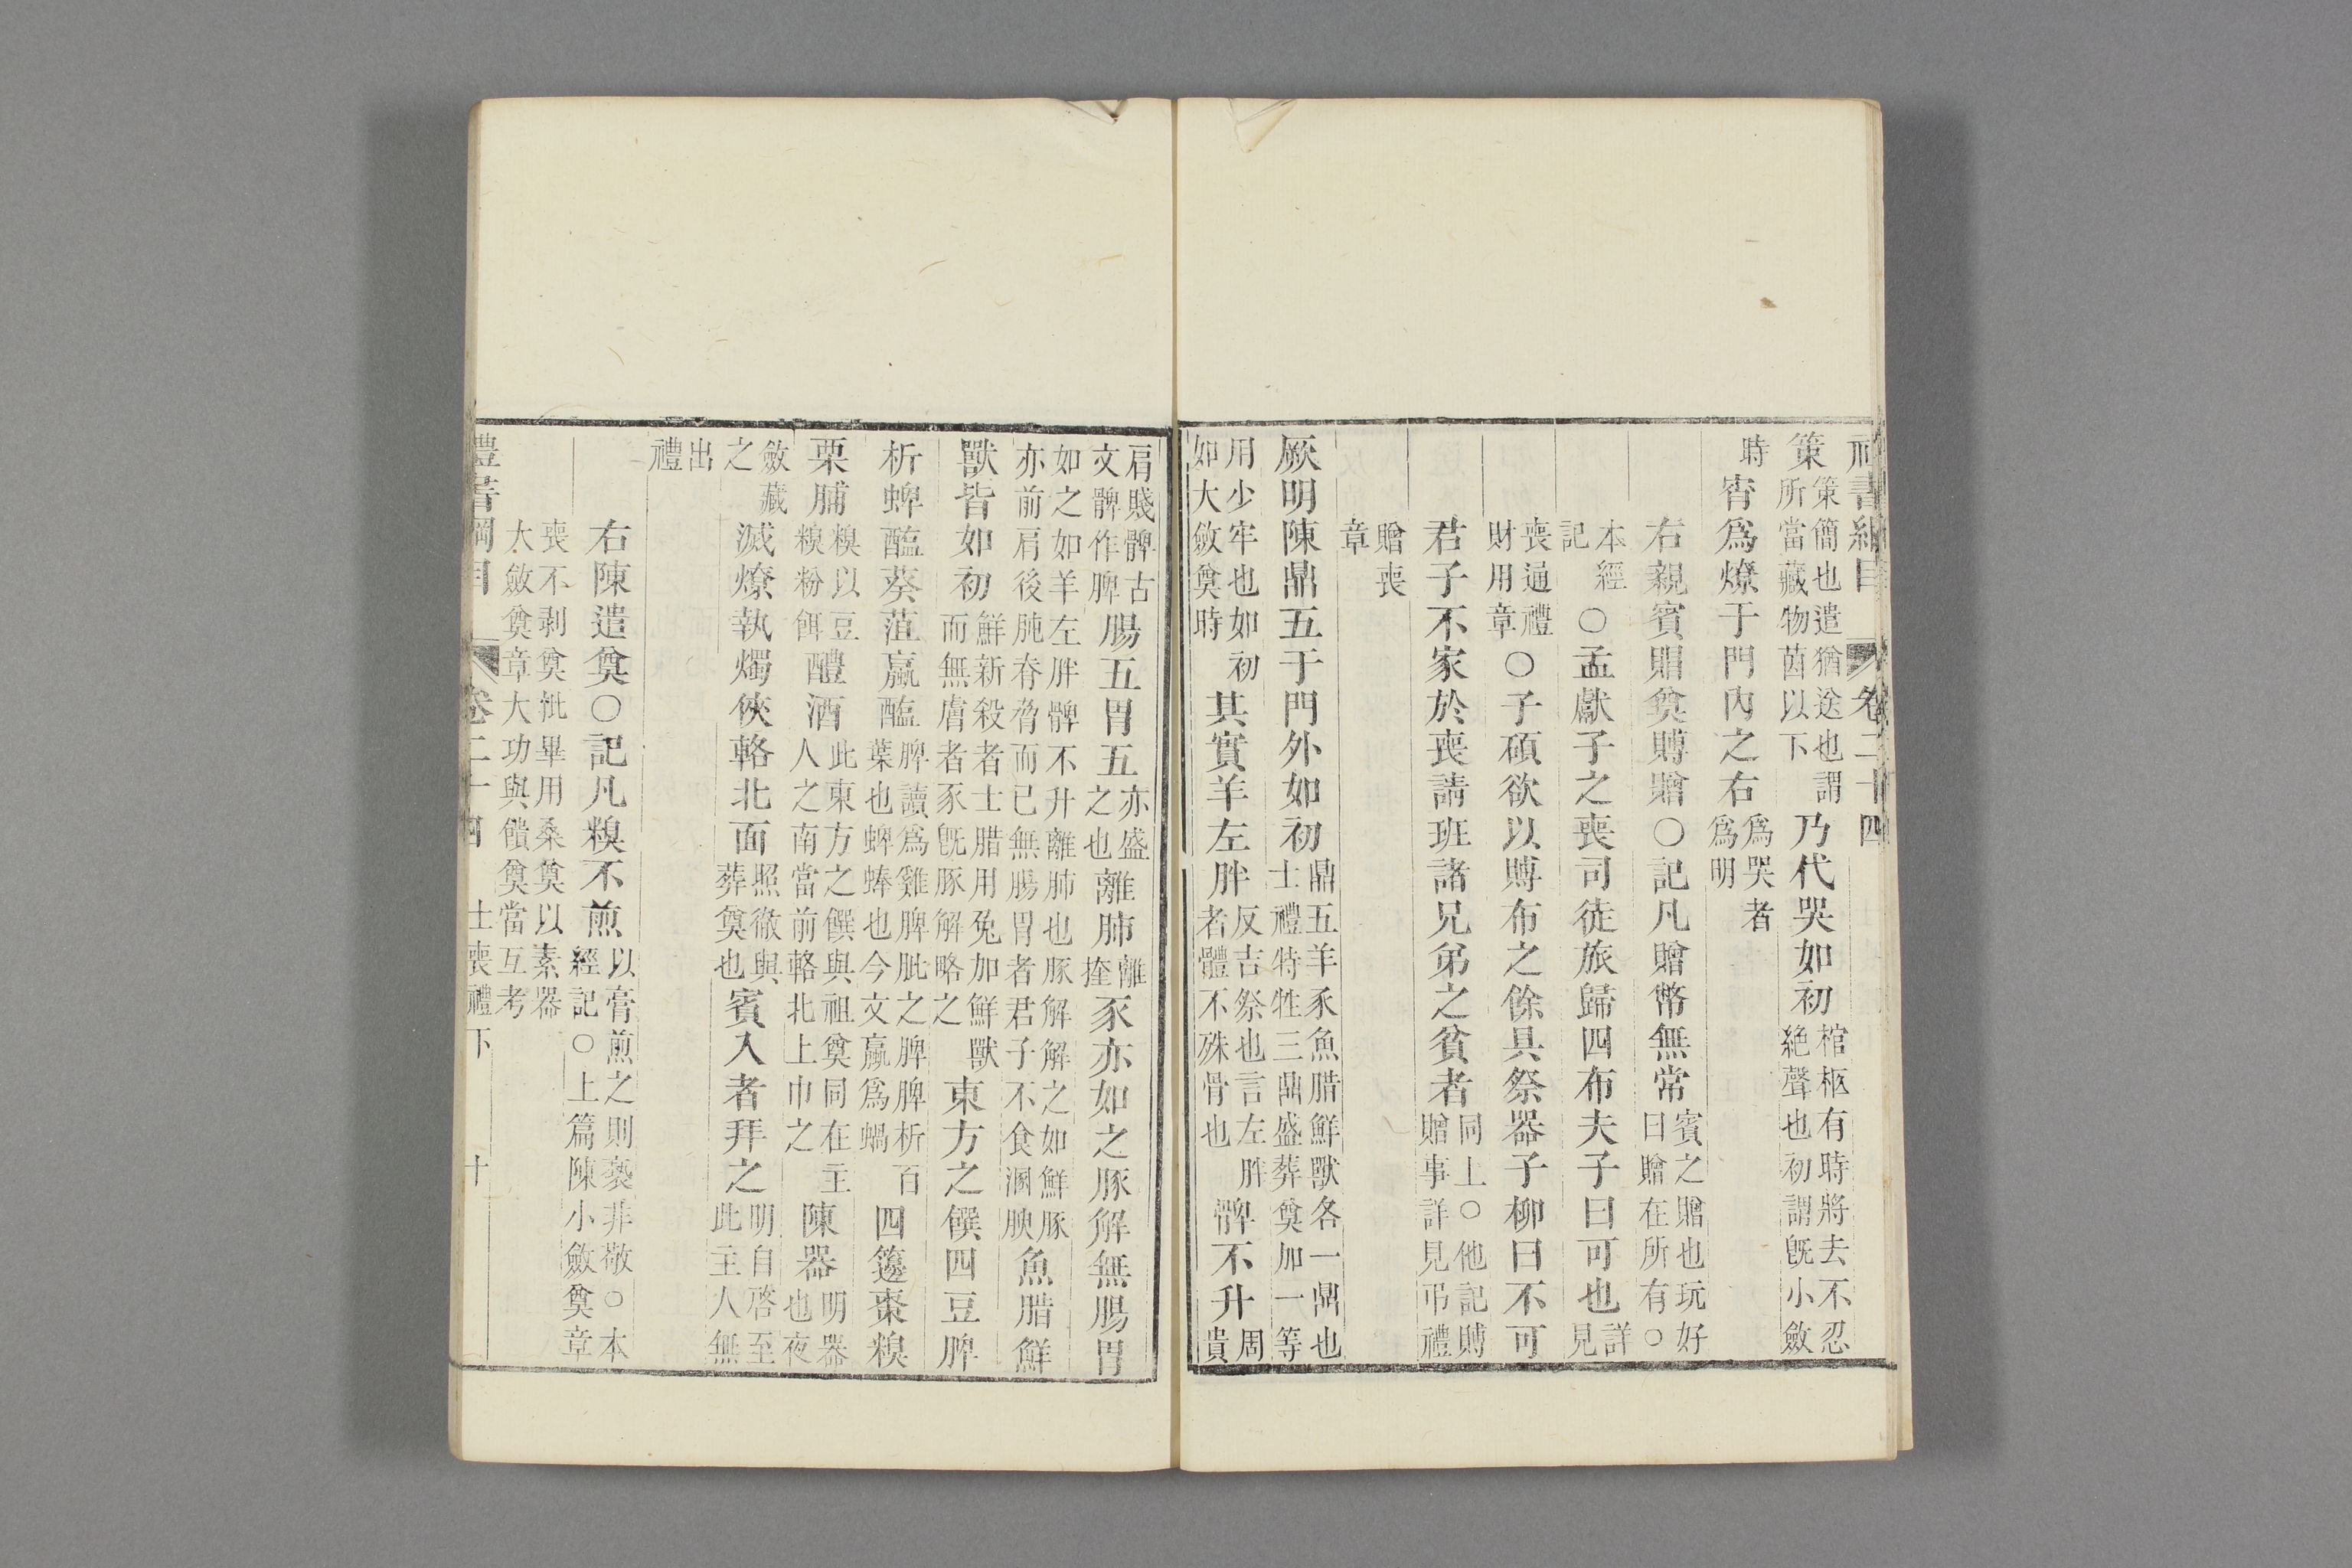 禮書綱目　卷二十四
策策簡也遣猶送也謂所當藏物茵以下乃代哭如初棺柩有時將去不忍絕聲也初謂旣小斂
時宵爲燎于門內之右爲哭者爲明
右親賓賵奠賻贈○記凡贈幣無常賓之贈也玩好曰贈在所有○
本經記○孟獻子之喪司徒旅歸四布夫子曰可也詳見
喪通禮財用章○子碩欲以賻布之餘具祭器子柳曰不可
君子不家於喪請班諸兄弟之貧者同上○他記賻贈事詳見弔禮
贈喪章
厥明陳鼎五于門外如初鼎五羊豕魚腊鮮獸各一鼎也士禮特牲三鼎盛葬奠加一等
用少牢也如初如大斂奠時其實羊左胖反吉祭也言左胖者體不殊骨也髀不升周貴
肩賤髀古文髀作脾腸五胃五亦盛之也離肺離豕亦如之豚解無腸胃
如之如羊左胖髀不升離肺也豚解解之如鮮豚亦前肩後肫脊脅而已無腸胃者君子不食溷腴魚腊鮮
獸皆如初鮮新殺者士腊用兔加鮮獸而無膚者豕旣豚解略之東方之饌四豆脾
析蜱醢葵菹蠃醢脾讀爲雞脾肶之脾脾析百葉也蜱蜯也今文蠃爲蝸四籩棗糗
栗脯糗以豆糗粉餌醴酒此東方之饌與祖奠同在主人之南當前輅北上巾之陳器明器也夜
斂藏之滅燎執燭俠輅北面照徹與葬奠也賓入者拜之明自啓至此主人無
出禮
右陳遣奠○記凡糗不煎以膏煎之則褻非敬○本經記○上篇陳小斂奠章
喪不剥奠批畢用桑奠以素器大斂奠章大功與饋奠當互考
禮書綱目　卷二十四　士喪禮下　十